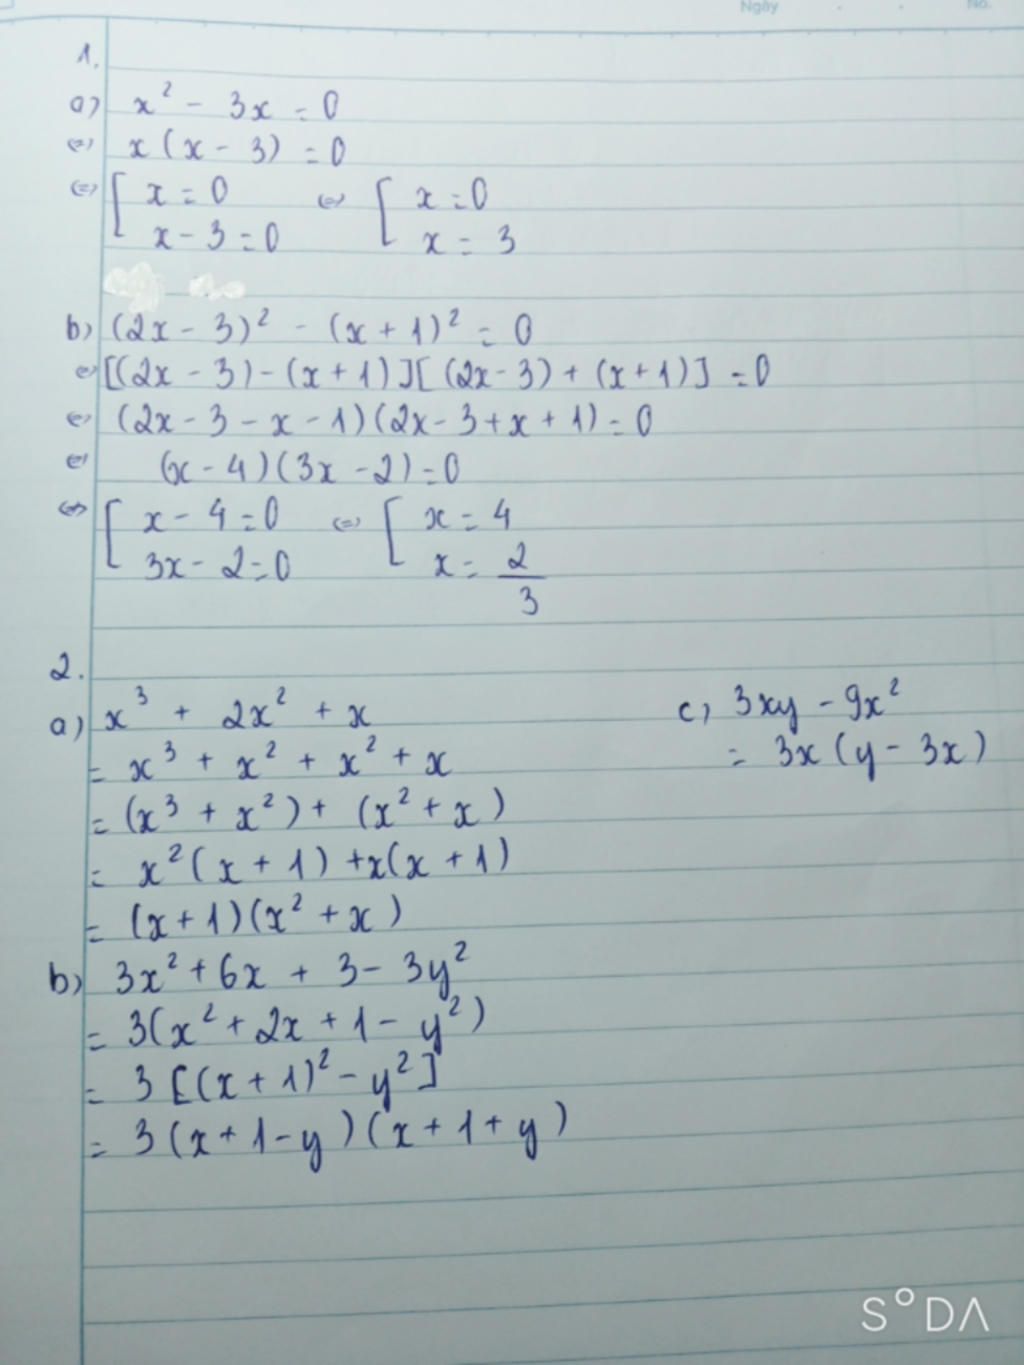 Ngày . . No.
1.
a) x² - 3x = 0
(=) x(x - 3) = 0
(=) [ x = 0 (=) [ x = 0
x - 3 = 0 x = 3
b) (2x - 3)² - (x + 1)² = 0
(=) [(2x - 3) - (x + 1)][(2x - 3) + (x + 1)] = 0
(=) (2x - 3 - x - 1)(2x - 3 + x + 1) = 0
(=) (x - 4)(3x - 2) = 0
(=) [ x - 4 = 0 (=) [ x = 4
3x - 2 = 0 x = 2/3
2.
a) x³ + 2x² + x
= x³ + x² + x² + x
= (x³ + x²) + (x² + x)
= x²(x + 1) + x(x + 1)
= (x + 1)(x² + x)
b) 3x² + 6x + 3 - 3y²
= 3(x² + 2x + 1 - y²)
= 3[(x + 1)² - y²]
= 3(x + 1 - y)(x + 1 + y)
c) 3xy - 9x²
= 3x(y - 3x)
S°DA